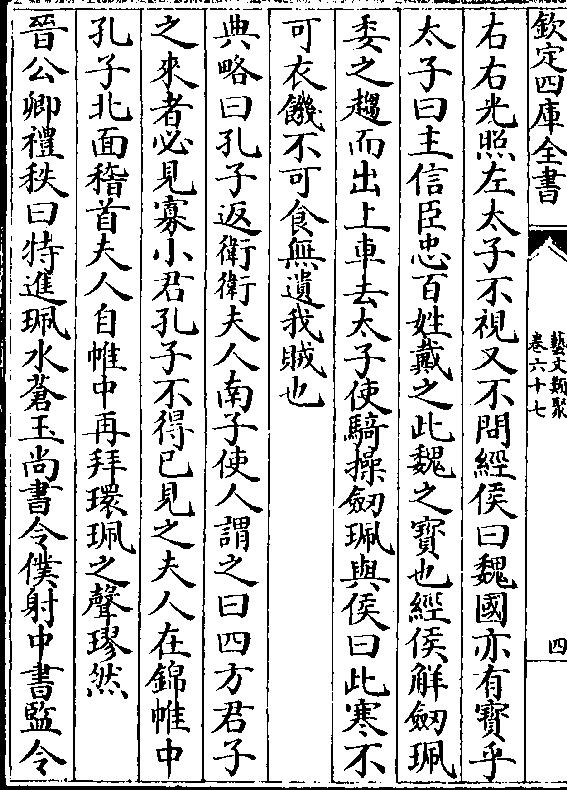 欽定四庫全書
藝文類聚
卷六十七
四
右右光照左太子不視又不問經侯曰魏國亦有寳乎
太子曰主信臣忠百姓戴之此魏之寳也經侯解劒珮
委之趨而出上車去太子使騎操劒珮與侯曰此寒不
可衣饑不可食無遺我賊也
典略曰孔子返衛衛夫人南子使人謂之曰四方君子
之來者必見寡小君孔子不得已見之夫人在錦帷中
孔子北面稽首夫人自帷中再拜環珮之聲璆然
晉公卿禮秩曰特進珮水蒼玉尚書令僕射中書監令